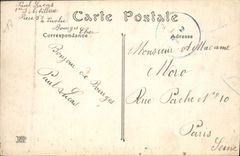 Carte Postale
Paul Lucas
Bourges Cher
Correspondance
Adresse
Monsieur et Madame
Moro
Rue Pache N° 10
Paris
Seine
Bonjour de Bourges
Paul Lucas